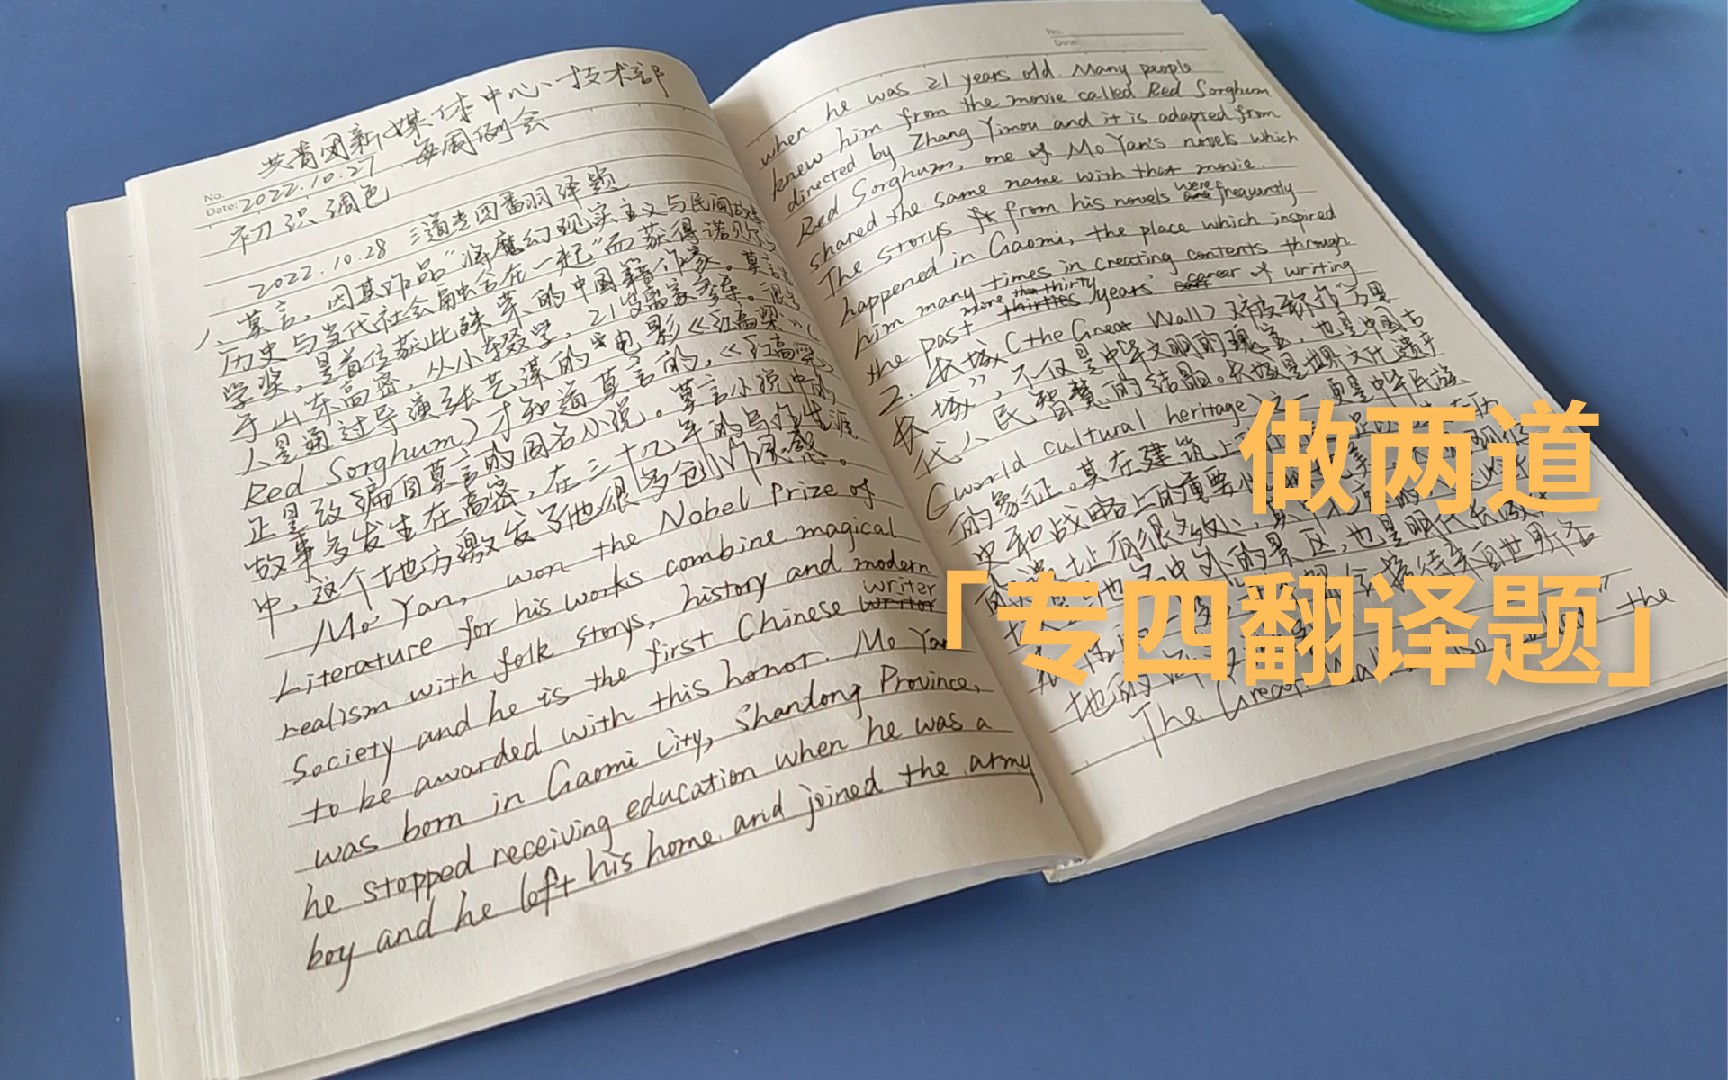 共青团新媒体中心-技术部
No.
Date: 2022.10.27 每周例会
初识调色
2022.10.28 三道专四翻译题
1、莫言,因其作品"将魔幻现实主义与民间故事
历史与当代社会融合在一起"而获得诺贝尔文
学奖,是首位获此殊荣的中国籍作家。莫言
于山东高密,从小辍学,21岁离家
人是通过导演张艺谋的电影《红高粱》(
Red Sorghum)才知道莫言的,《红高粱》
正是改编自莫言的同名小说。莫言小说中的
故事多发生在高密,在三十几年的写作生涯
中,这个地方激发了他很多创作灵感。
Mo Yan, won the Nobel Prize of
Literature for his works combine magical
realism with folk storys, history and modern
society and he is the first Chinese writer
to be awarded with this honor. Mo Yan
was born in Gaomi city, Shandong Province,
he stopped receiving education when he was a
boy and he left his home and joined the army
No.
Date:
when he was 21 years old. Many people
knew him from the movie called Red Sorghum
directed by Zhang Yimou and it is adapted from
Red Sorghum, one of Mo Yan's novels which
shared the same name with that movie.
The storys from his novels were frequently
happened in Gaomi, the place which inspired
him many times in creating contents through
the past more than thirty years' career of writing
2. 长城(the Great Wall)
长城",不仅是中华文明的瑰宝,也是中国古
代人民智慧的结晶。长城是世界文化遗产
(world cultural heritage)之一,更是中华民族
的象征。其在建筑上
史和战略上的重要
遗址有很多处,
中外的景区,也是明代
接待来自世界各
地的
The Great Wall the
做两道
「专四翻译题」